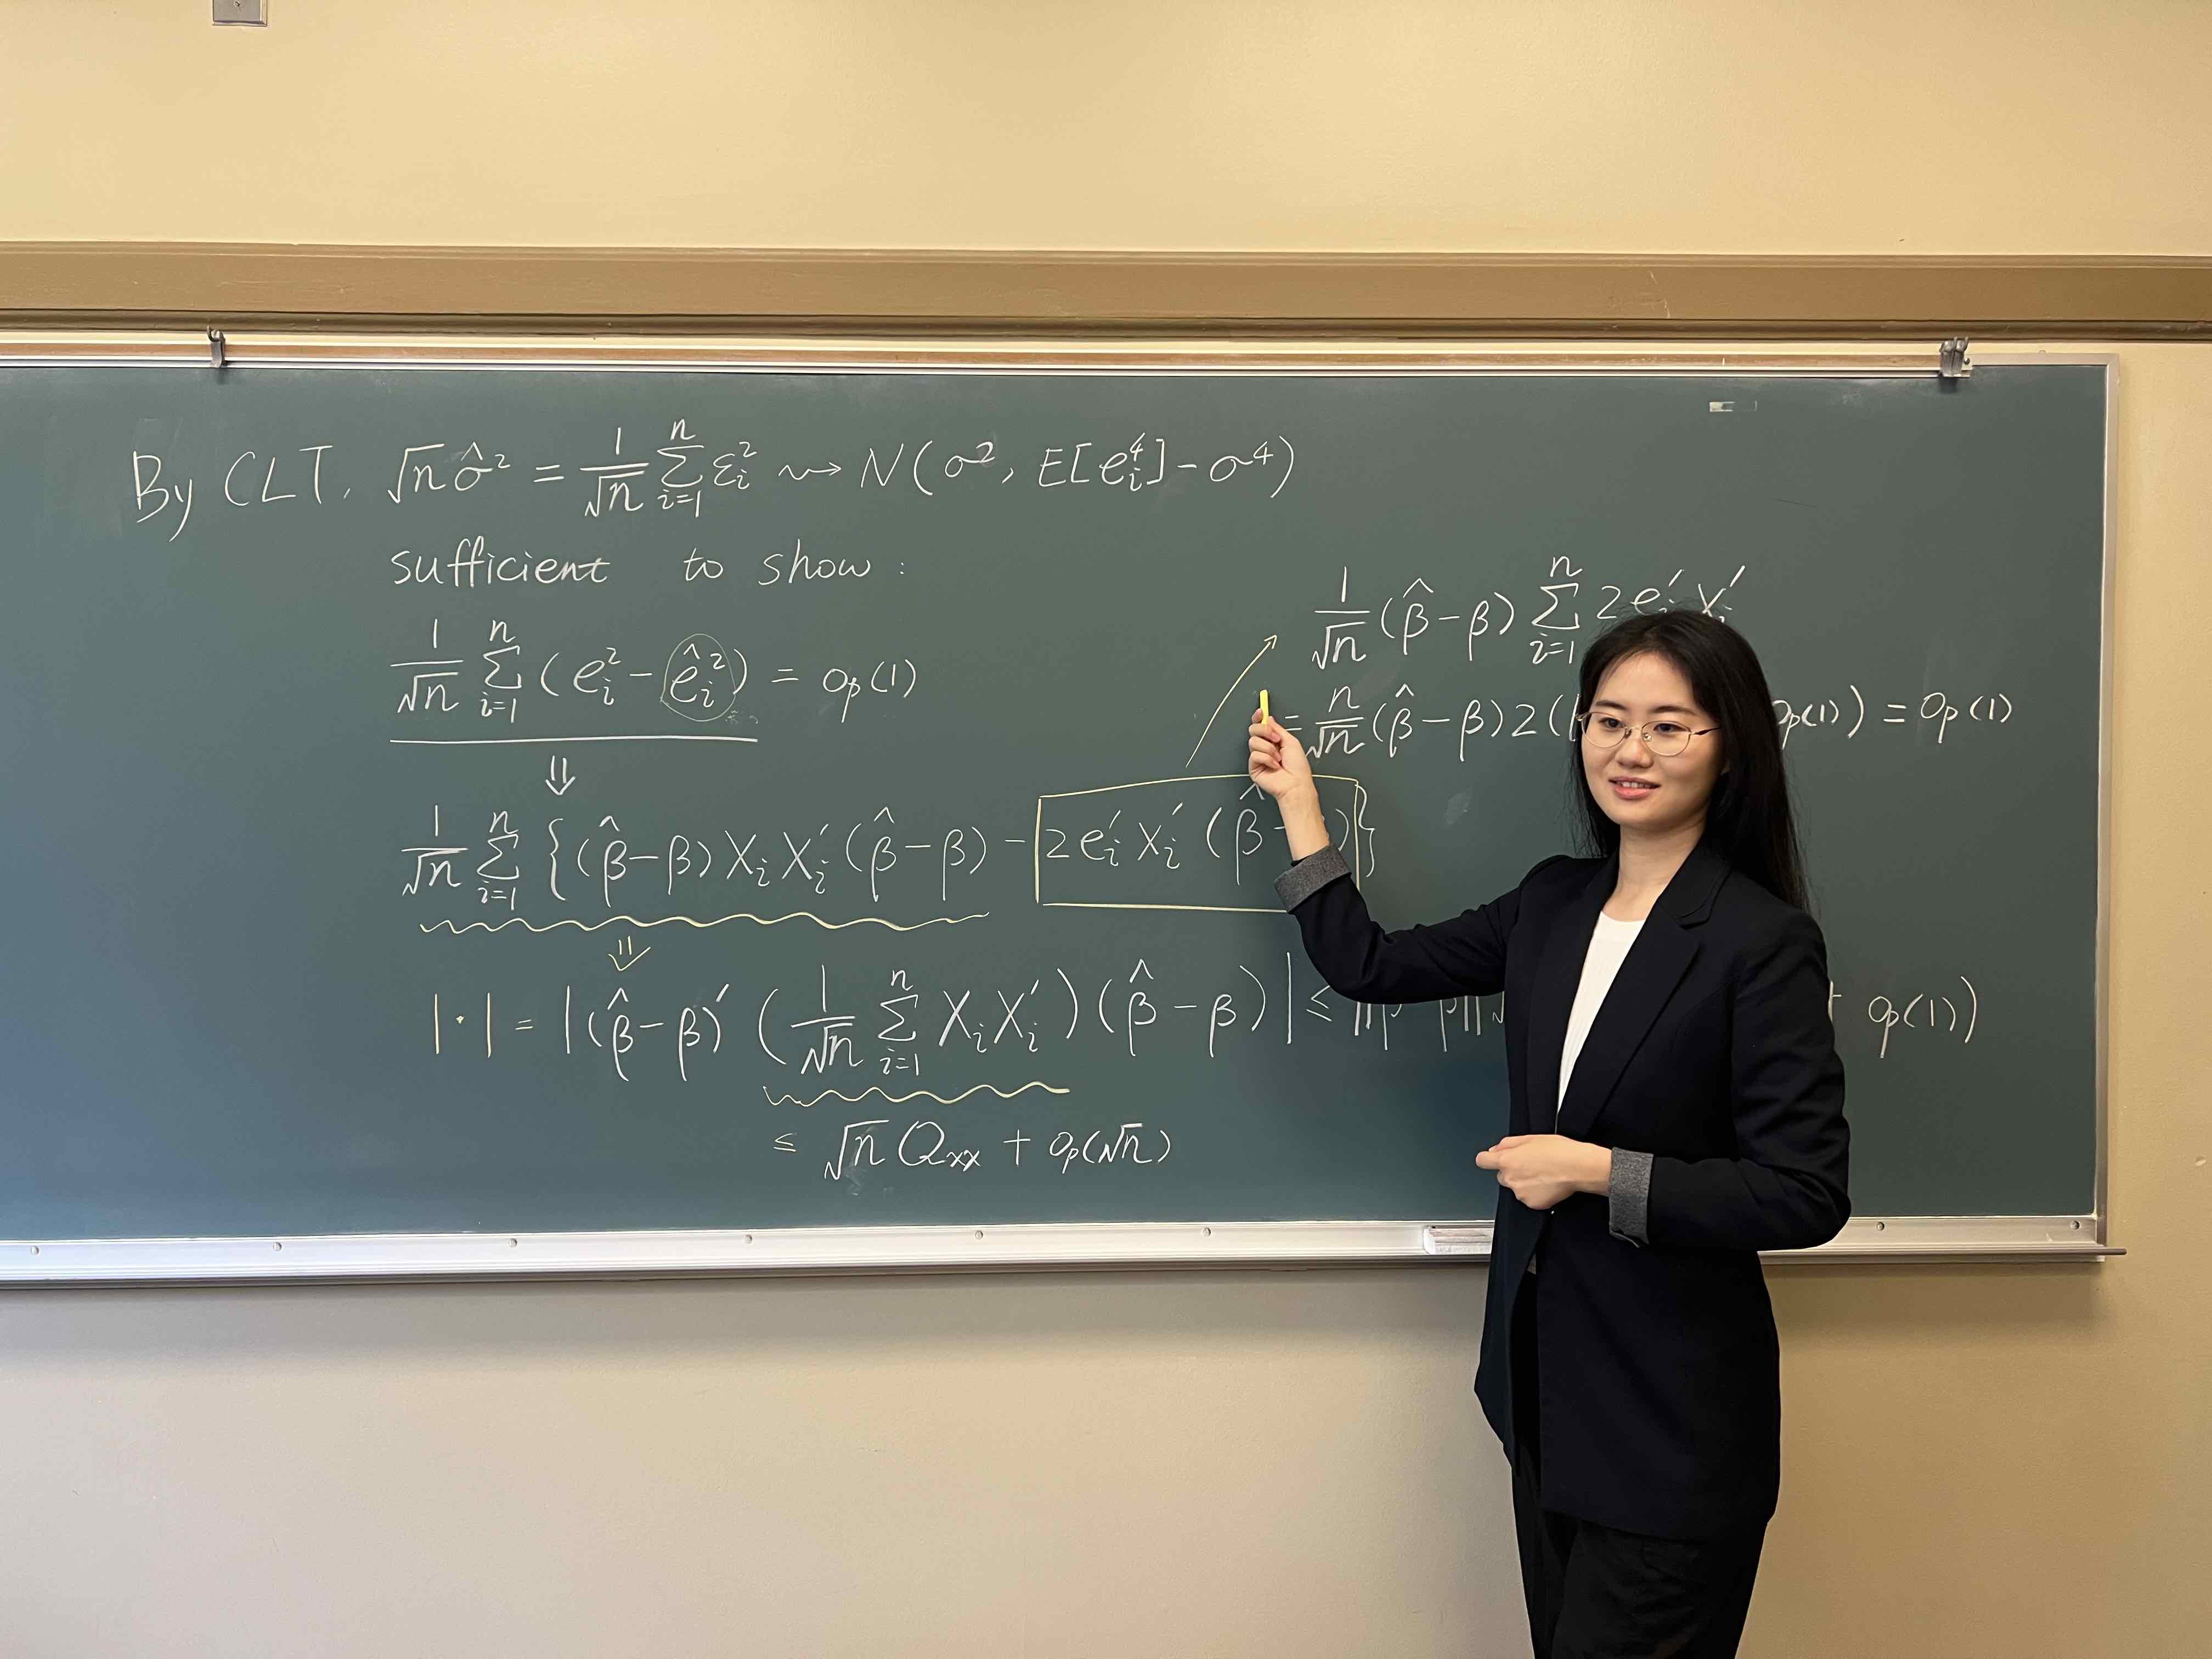 By CLT, √n σ̂² = 1/√n Σ_{i=1}^{n} ε_i² ⇝ N(σ², E[e_i⁴] - σ⁴)
sufficient to show :
1/√n Σ_{i=1}^{n} (e_i² - ê_i²) = op(1)
⇓
1/√n Σ_{i=1}^{n} {(β̂-β) X_i X_i′ (β̂-β) - 2e_i′ X_i′ (β̂- )}
⇓
|·| = |(β̂-β)′ (1/√n Σ_{i=1}^{n} X_i X_i′) (β̂-β)| ≤ + op(1))
≤ √n Q_xx + op(√n)
1/√n (β̂-β) Σ_{i=1}^{n} 2e_i′ X_i′
= n/√n (β̂-β) 2( op(1)) = op(1)